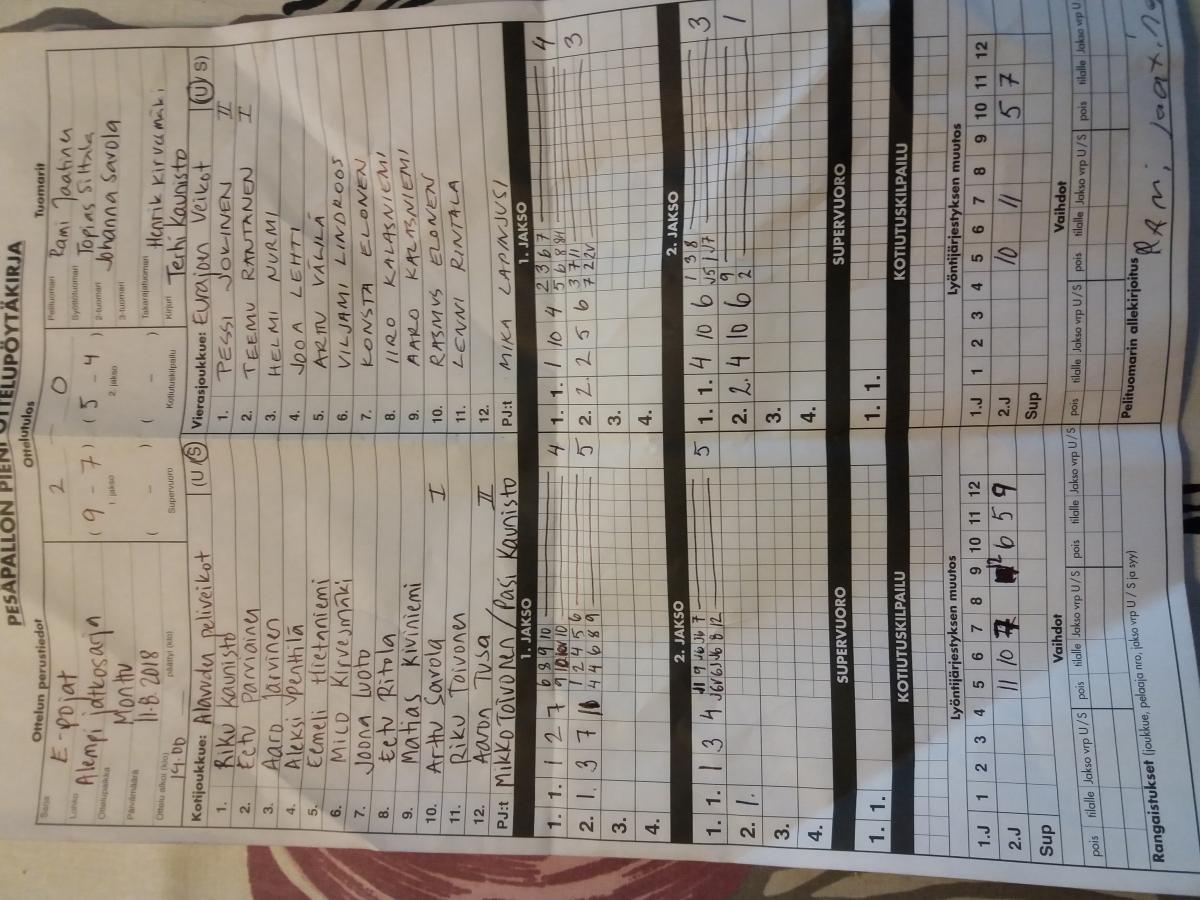 PESÄPALLON PIENI OTTELUPÖYTÄKIRJA
Ottelun perustiedot
Ottelutulos
Tuomarit
Sarja
E-pojat
Lohko
Alempi jatkosarja
Ottelupaikka
Monttu
Päivämäärä
11.8.2018
Ottelu alkoi (klo)
14.00
päättyi (klo)
2 – 0
( 9 – 7 ) ( 5 – 4 )
1. jakso
2. jakso
( – ) ( – )
Supervuoro
Kotiutuskilpailu
Pelituomari
Rami Jaatinen
Syöttötuomari
Topias Siltala
2-tuomari
Johanna Savola
3-tuomari
Takarajatuomari
Henrik Kirvesmäki
Kirjuri
Terhi Kaunisto
Kotijoukkue: Alavuden Peliveikot (U/S)
1. Riku Kaunisto
2. Eetu Parviainen
3. Aaro Järvinen
4. Aleksi Penttilä
5. Eemeli Hietaniemi
6. Mico Kirvesmäki
7. Joona Luoto
8. Eetu Ritola
9. Matias Kiviniemi
10. Arttu Savola I
11. Riku Toivonen
12. Aaron Tusa II
PJ:t Mikko Toivonen / Pasi Kaunisto
Vierasjoukkue: Eurajoen Veikot (U/S)
1. PESSI JOKINEN II
2. TEEMU RANTANEN I
3. HELMI NURMI
4. JOOA LEHTI
5. ARTTU VÄLILÄ
6. VILJAMI LINDROOS
7. KONSTA ELONEN
8. IIRO KALASNIEMI
9. AARO KALASNIEMI
10. RASMUS ELONEN
11. LENNI RINTALA
12.
PJ:t MIKA LAPINJUSI
1. JAKSO
1. 1. 1 2 7 6 8 9 10 4
2. 1. 3 7 1 2 4 5 6 5
4 4 6 8 9
3.
4.
1. JAKSO
1. 1. 1 10 4 2 3 6 7 4
5 6 8
2. 2. 2 5 6 3 7 11 3
3.
4.
2. JAKSO
1. 1. 1 3 4 5
2. 1.
3.
4.
2. JAKSO
1. 1. 4 10 6 1 3 8 3
2. 2. 4 10 6 9 1
2
3.
4.
SUPERVUORO
1. 1.
SUPERVUORO
1. 1.
KOTIUTUSKILPAILU
KOTIUTUSKILPAILU
Lyöntijärjestyksen muutos
1.J 1 2 3 4 5 6 7 8 9 10 11 12
2.J 11 10 7 12 6 5 9
Sup
Lyöntijärjestyksen muutos
1.J 1 2 3 4 5 6 7 8 9 10 11 12
2.J 10 11 5 7
Sup
Vaihdot
pois tilalle Jakso vrp U/S pois tilalle Jakso vrp U/S pois tilalle Jakso vrp U/S
Vaihdot
pois tilalle Jakso vrp U/S pois tilalle Jakso vrp U/S pois tilalle Jakso vrp U
Rangaistukset (joukkue, pelaaja nro, jakso vrp U/S ja syy)
Pelituomarin allekirjoitus